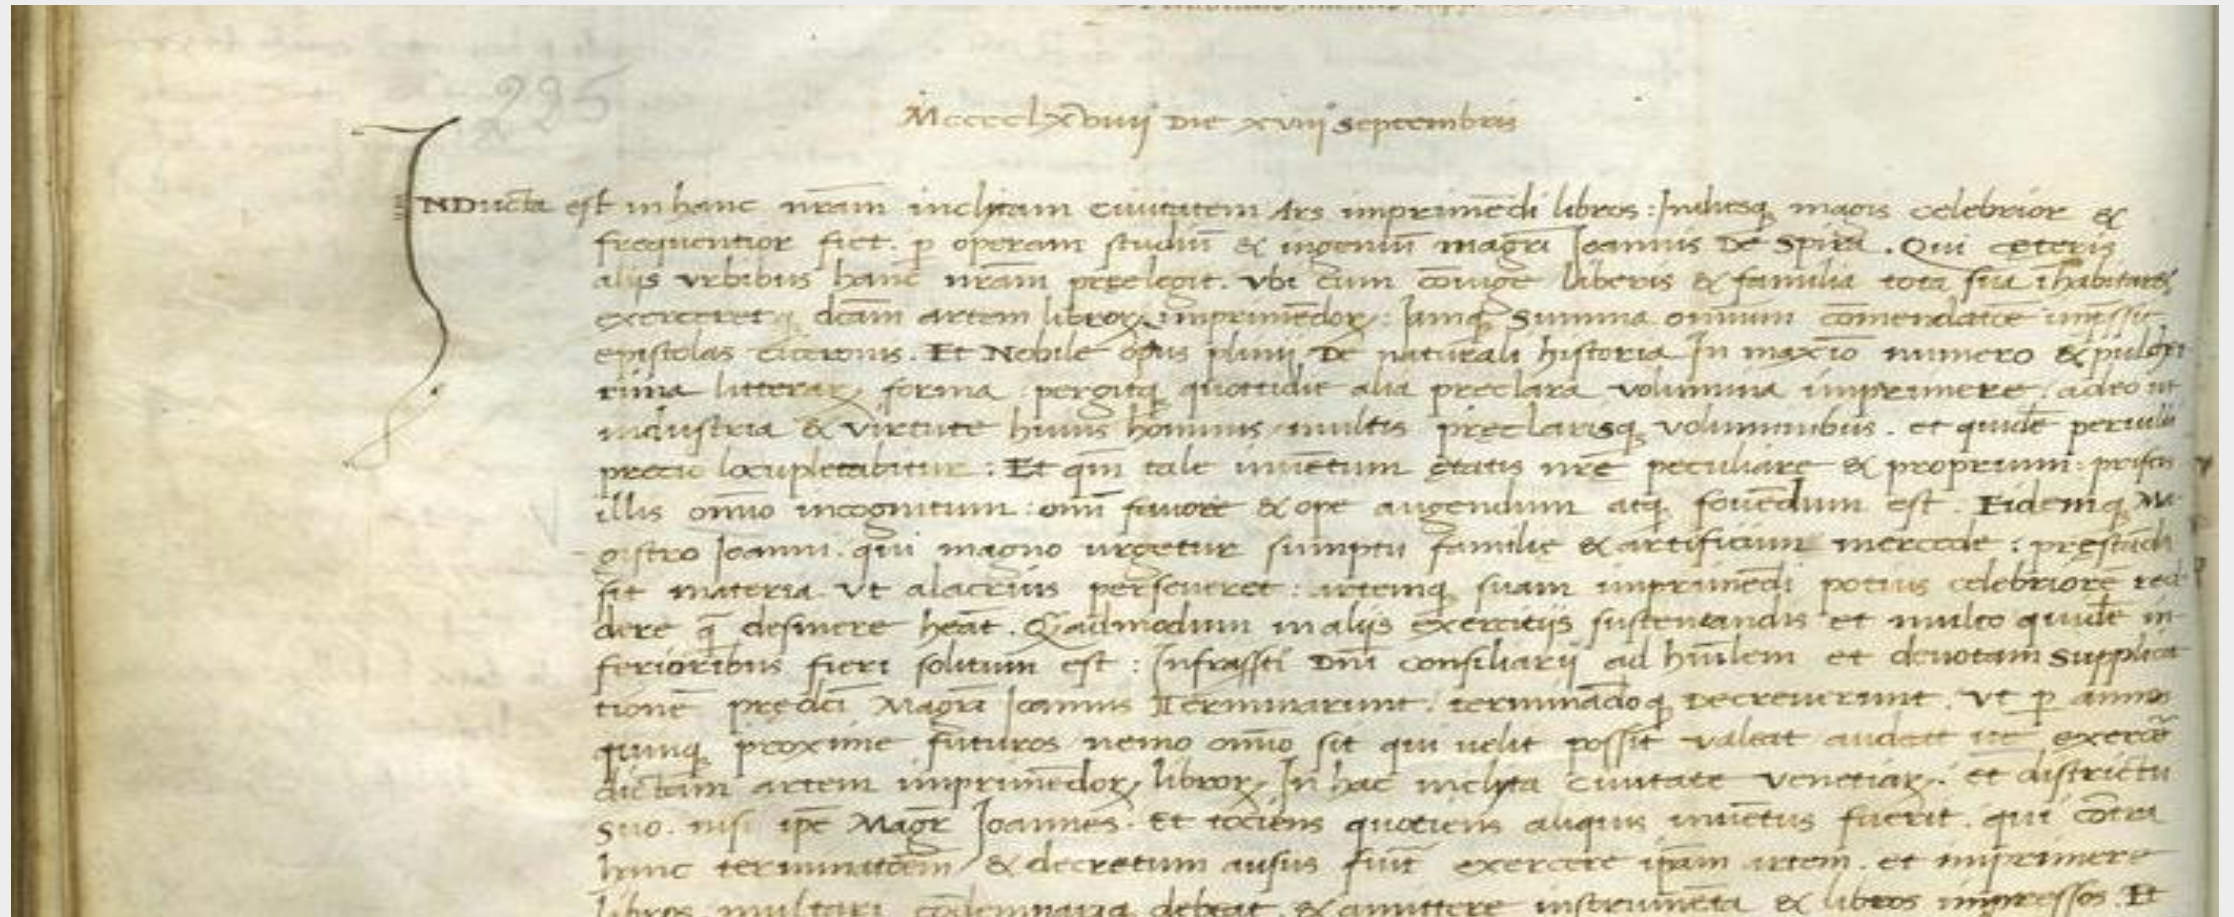 235
Mcccclxviiij Die xviij Septembris
INDucta est in hanc nr̄am inclytam Ciuitatem Ars imprimēdi libros: Indiesq magis celebrior &
frequentior fiet. p operam studiū & ingeniū magrī Joannis De Spira. Qui ceteris
alijs vrbibus hanc nr̄am preelegit. Vbi cum cōiuge liberis & familia tota sua ihabitaret
exerceretq dcām artem libroꝝ imprimēdoꝝ: Jamq Summa omnium cōmendatiōe impssit
epistolas Ciceronis. Et Nobile opus plinij De naturali historia In maxīo numero & pulcher
rima litteraꝝ forma pergitq quottidie alia preclara volumina imprimere. adeo ut
industria & virtute huius hominis multis preclarisq voluminibus. et quidē peruili
precio locupletabitur: Et qm̄ tale inuētum ętatis nrę peculiare & proprium priscis
illis om̄io incognitum: omī fauore & ope augendum atq fouēdum est. Eidemq Ma
gistro Joanni. qui magno urgetur sumptu familię & artificum mercede: pręstāda
sit materia Vt alacrius perseueret: artemq suam imprimēdi potius celebriorē red
dere q̄ desinere heāt. Qēadmodum in alijs exercitijs sustentandis et multo quidē in
ferioribus fieri solitum est: Infrassti Dn̄i Consiliarij ad hūilem et deuotam Supplica
tionē predcī Magrī Joannis Terminarunt. terminādoq Decreuerunt. Vt p annos
quinq proxime futuros nemo om̄io sit qui uelit possit valeat audeat ue exercē
dictam artem imprimēdoꝝ libroꝝ In hac inclyta Ciuitate Venetiaꝝ. et districtu
suo. nisi ipē Magr̄ Joannes. Et tociens quotiens aliquis inuētus fuerit. qui cōtra
hanc terminatōem & decretum ausus fuīt exercere ipām artem. et imprimere
libros. multari cōdemnariq debeat. & amittere instrumēta & libros impressos. Et